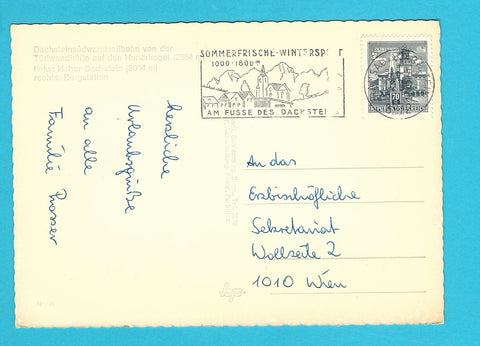 Dachsteinsüdwandseilbahn von der
Türlwandhütte auf den Hunerkogel (2694
Hoher Dachstein (3004 m)
rechts: Bergstation
SOMMERFRISCHE-WINTERSP T
1000-1800 m
AM FUSSE DES DACHSTEI
70
herzliche
Urlaubsgrüße
an alle
Familie Prosser
An das
Erzbischöfliche
Sekretariat
Wollzeile 2
1010 Wien